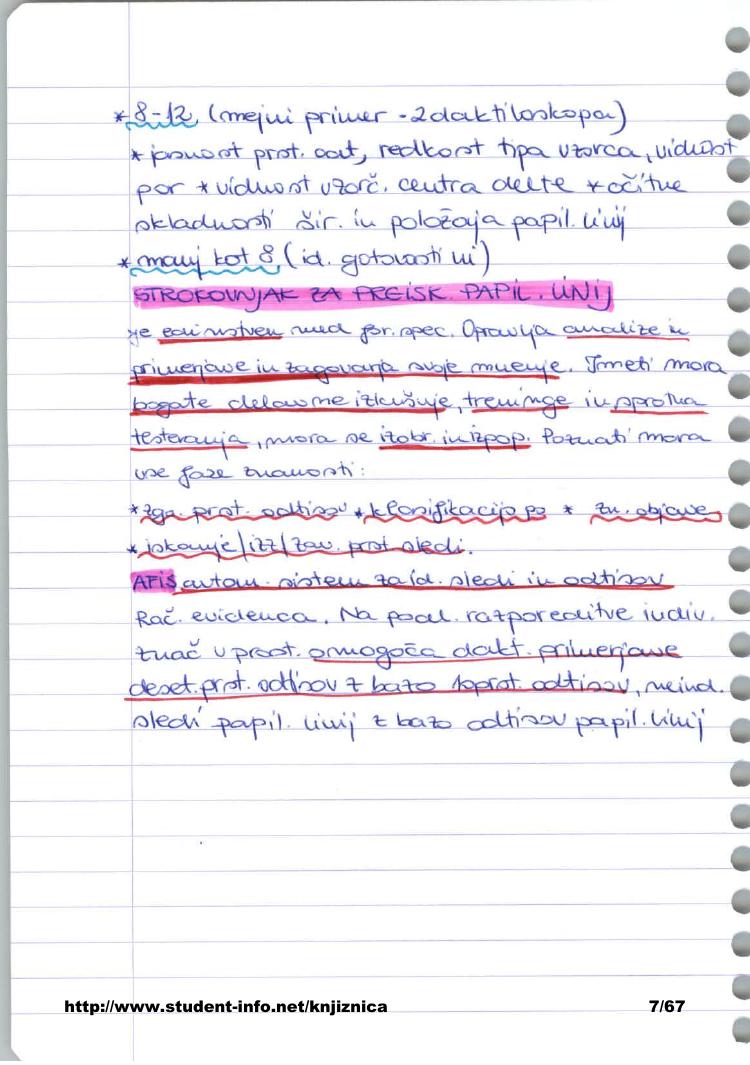 * 8-12 (mejni primer - 2 daktiloskopa)
* jasnost prst. odt, redkost tipa vzorca, vidnost
por * vidnost vzorč. centra delte * očitne
skladnosti šir. in položaja papil. linij
* manj kot 8 (id. gotovosti ni)
STROKOVNJAK ZA PREISK. PAPIL. LINIJ
je edinstven med for. spec. Opravlja analize in
primerjave in zagovarja svoje mnenje. Imeti mora
bogate delovne izkušnje, treninge in sprotna
testiranja, mora se izobr. in izpop. Poznati mora
vse faze znanosti:
* zga. prst. odtisov * klasifikacijo po * zn. objave
* iskanje/izz/zav. prst. sledi.
AFIS avtom. sistem za id. sledi in odtisov
Rač. evidenca. Na podl. razporeditve indiv.
znač v prost. omogoča dakt. primerjave
deset. prst. odtisov z bazo 10prst. odtisov, neind.
sledi papil. linij z bazo odtisov papil. linij
http://www.student-info.net/knjiznica 7/67